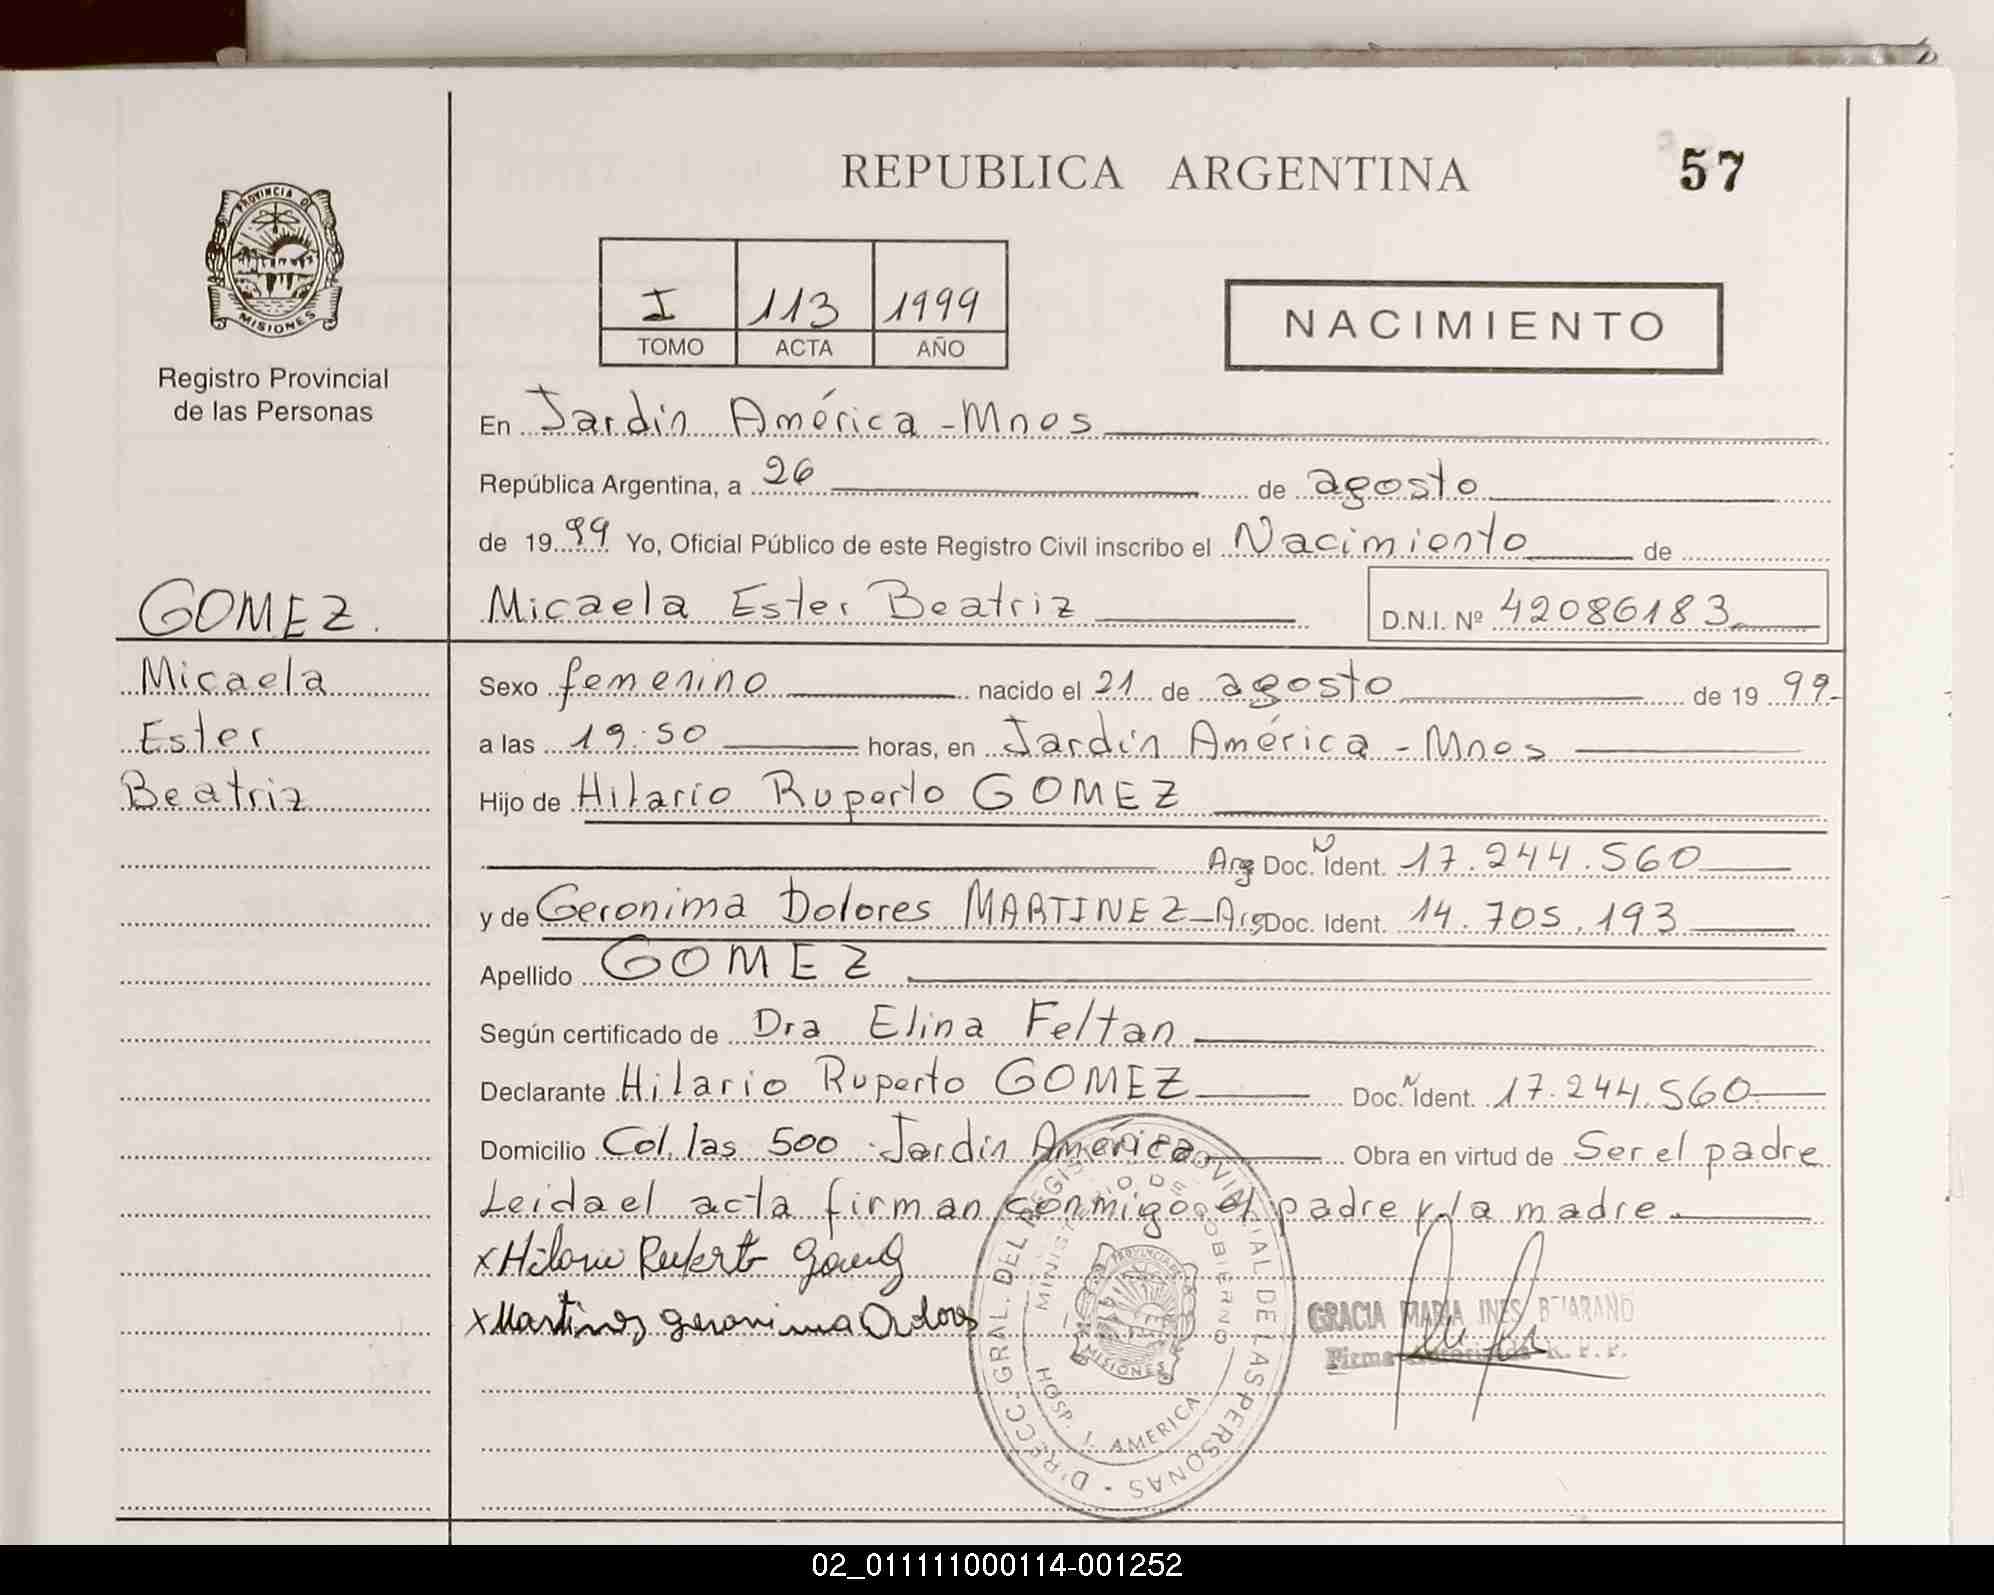 REPUBLICA ARGENTINA
57
PROVINCIA D
MISIONES
Registro Provincial
de las Personas
I 113 1999
TOMO ACTA AÑO
NACIMIENTO
En Jardín América - Mnes
República Argentina, a 26 de agosto
de 1999 Yo, Oficial Público de este Registro Civil inscribo el Nacimiento de
GOMEZ.
Micaela Ester Beatriz D.N.I. Nº 42086183
Micaela
Ester
Beatriz
Sexo femenino nacido el 21 de agosto de 1999-
a las 19:50 horas, en Jardín América - Mnes
Hijo de Hilario Ruperto GOMEZ
Arg Doc. N Ident. 17.244.560
y de Geronima Dolores MARTINEZ - Arg Doc. Ident. 14.705.193
Apellido GOMEZ
Según certificado de Dra Elina Feltan
Declarante Hilario Ruperto GOMEZ Doc. N Ident. 17.244.560
Domicilio Col. las 500 - Jardín América Obra en virtud de Ser el padre
Leida el acta firman conmigo el padre y la madre.
x Hilario Ruperto Gomez
x Martinez Geronima Dolores
DIRECC. GRAL. DEL REGISTRO PROVINCIAL DE LAS PERSONAS
MINISTERIO DE GOBIERNO
HOSP. J. AMERICA
PROVINCIA
MISIONES
GRACIA MARIA INES BEJARANO
Firma Autorizada R. P. P.
02_011111000114-001252